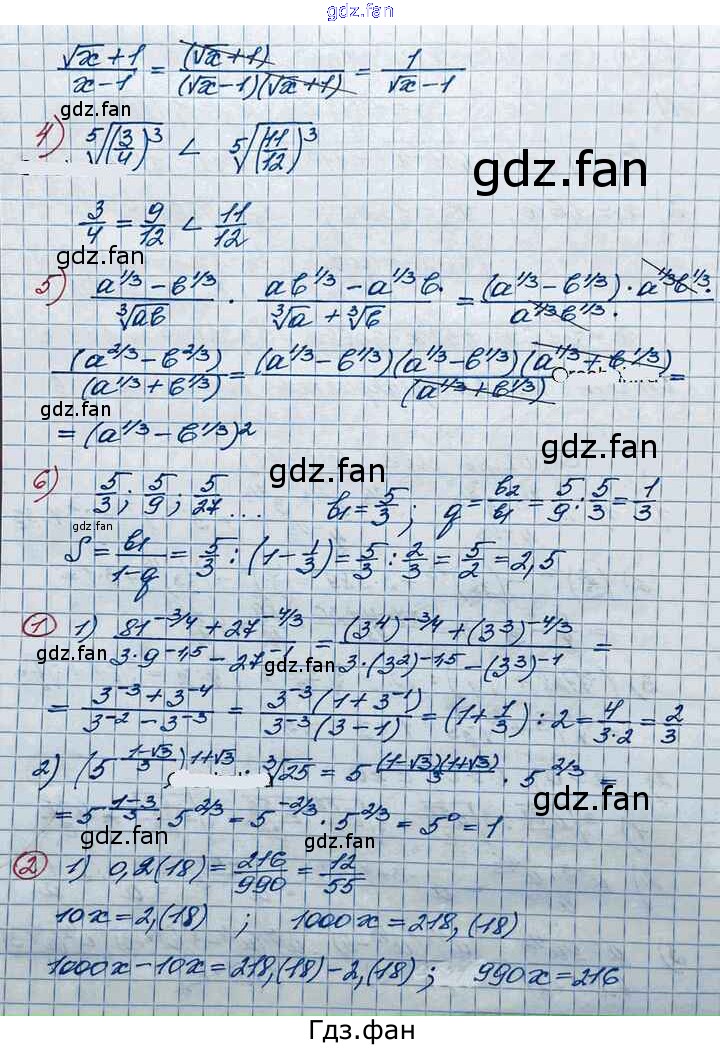 gdz.fan
(√x+1)/(x−1) = (√x+1)/((√x−1)(√x+1)) = 1/(√x−1)
gdz.fan
4) ⁵√((3/4)³) < ⁵√((11/12)³)
gdz.fan
3/4 = 9/12 < 11/12
gdz.fan
5) (a^(1/3) − b^(1/3))/∛(ab) · (ab^(1/3) − a^(1/3)b)/(∛a + ∛b) = ((a^(1/3) − b^(1/3)) · a^(1/3)b^(1/3))/(a^(1/3)b^(1/3)) ·
(a^(2/3) − b^(2/3))/(a^(1/3) + b^(1/3)) = ((a^(1/3) − b^(1/3))(a^(1/3) − b^(1/3))(a^(1/3) + b^(1/3)))/(a^(1/3) + b^(1/3)) =
gdz.fan
= (a^(1/3) − b^(1/3))²
gdz.fan
gdz.fan
6) 5/3; 5/9; 5/27 ... b₁ = 5/3; q = b₂/b₁ = 5/9 : 5/3 = 1/3
gdz.fan
S = b₁/(1−q) = 5/3 : (1 − 1/3) = 5/3 : 2/3 = 5/2 = 2,5
① 1) (81^(−3/4) + 27^(−4/3))/(3·9^(−1,5) − 27^(−1)) = ((3⁴)^(−3/4) + (3³)^(−4/3))/(3·(3²)^(−1,5) − (3³)^(−1)) =
gdz.fan
gdz.fan
= (3^(−3) + 3^(−4))/(3^(−2) − 3^(−3)) = (3^(−3)(1 + 3^(−1)))/(3^(−3)(3 − 1)) = (1 + 1/3) : 2 = 4/(3·2) = 2/3
2) (5^((1−√3)/3))^(1+√3) · ∛25 = 5^((1−√3)(1+√3)/3) · 5^(2/3) =
gdz.fan
= 5^((1−3)/3) · 5^(2/3) = 5^(−2/3) · 5^(2/3) = 5⁰ = 1
gdz.fan
gdz.fan
② 1) 0,2(18) = 216/990 = 12/55
10x = 2,(18) ; 1000x = 218,(18)
1000x − 10x = 218,(18) − 2,(18) ; 990x = 216
Гдз.фан